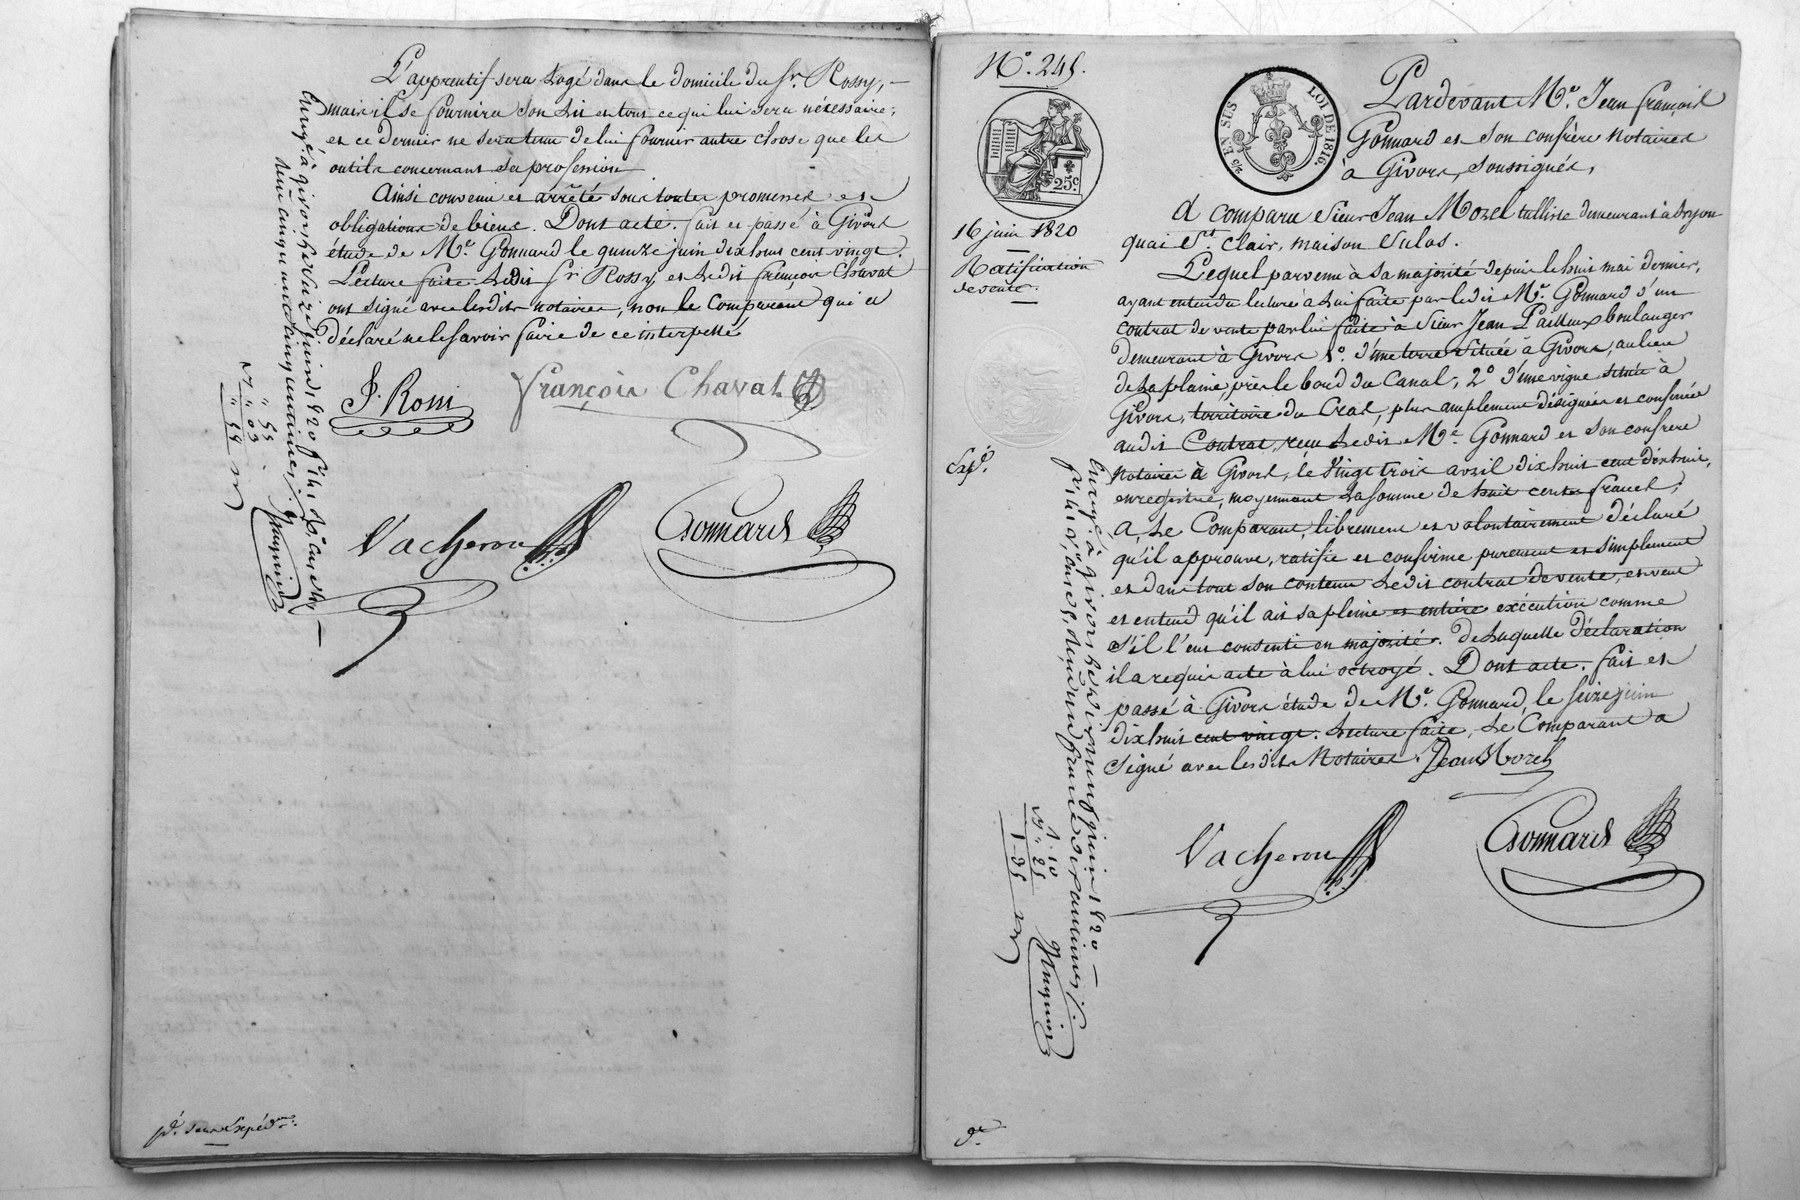 L'apprentif sera Logé dans le domicile du Sr. Rossy,
mais il se fournira son Lit et tous ce qui lui sera nécessaire,
et ce dernier ne sera tenu de lui fournir autre chose que les
outils concernant sa profession
Ainsi convenu et arrêté sous toutes promesses et
obligations de biens. Dont acte. fait et passé à Givors
étude de Me. Gonnard le quinze juin dix huit cent vingt.
Lecture faite Ledit Sr. Rossy et Ledit françois Chavat
ont signé avec lesdits notaires, non le Comparant qui a
Déclaré ne le savoir faire de ce interpellé
J. Rossi
françois Chavat
Vacheron
Gonnard
Enregé. à givors le seize juin 1820
55
03
58
jd. sans Expédon.
N°. 245.
25c
EN SUS
LOI DE 1816.
16 juin 1820
Ratification
de vente.
Expd.
Pardevant Me. Jean françois
Gonnard et son confrère notaires
à Givors, soussignés,
A comparu Sieur Jean Mozel tulliste demeurant à Lyon
quai St. Clair, maison Sulos.
Lequel parvenu à sa majorité depuis le huit mai dernier,
ayant entendu lecture à Lui faite par ledit Me. Gonnard d'un
contrat de vente par lui faite à Sieur Jean Pailleux boulanger
demeurant à Givors 1°. d'une terre située à Givors, au lieu
de La plaine, près le bord du Canal, 2° d'une vigne située à
Givors, territoire du Cras, plus amplement désignées et confinées
audit Contrat, reçu Ledit Me. Gonnard et son confrere
Notaires à Givors, le Vingt trois avril dix huit cent dix huit,
enregistré, moyennant La somme de huit cents francs;
A, Le Comparant, librement et volontairement déclaré
qu'il approuve, ratifie et confirme purement et simplement
et dans tout son contenu Ledit contrat de vente, et veut
et entend qu'il ait sa pleine et entière exécution comme
s'il l'eut consenti en majorité. De Laquelle déclaration
il a requis acte à lui octroyé. Dont acte. fait et
passé à Givors étude de Me. Gonnard, le seize juin
dix huit cent vingt. Lecture faite, Le Comparant a
signé avec lesdits Notaires. Jean Mozel
Vacheron
Gonnard
Enregé. à givors le dix neuf juin 1820
1.10
25
1.35